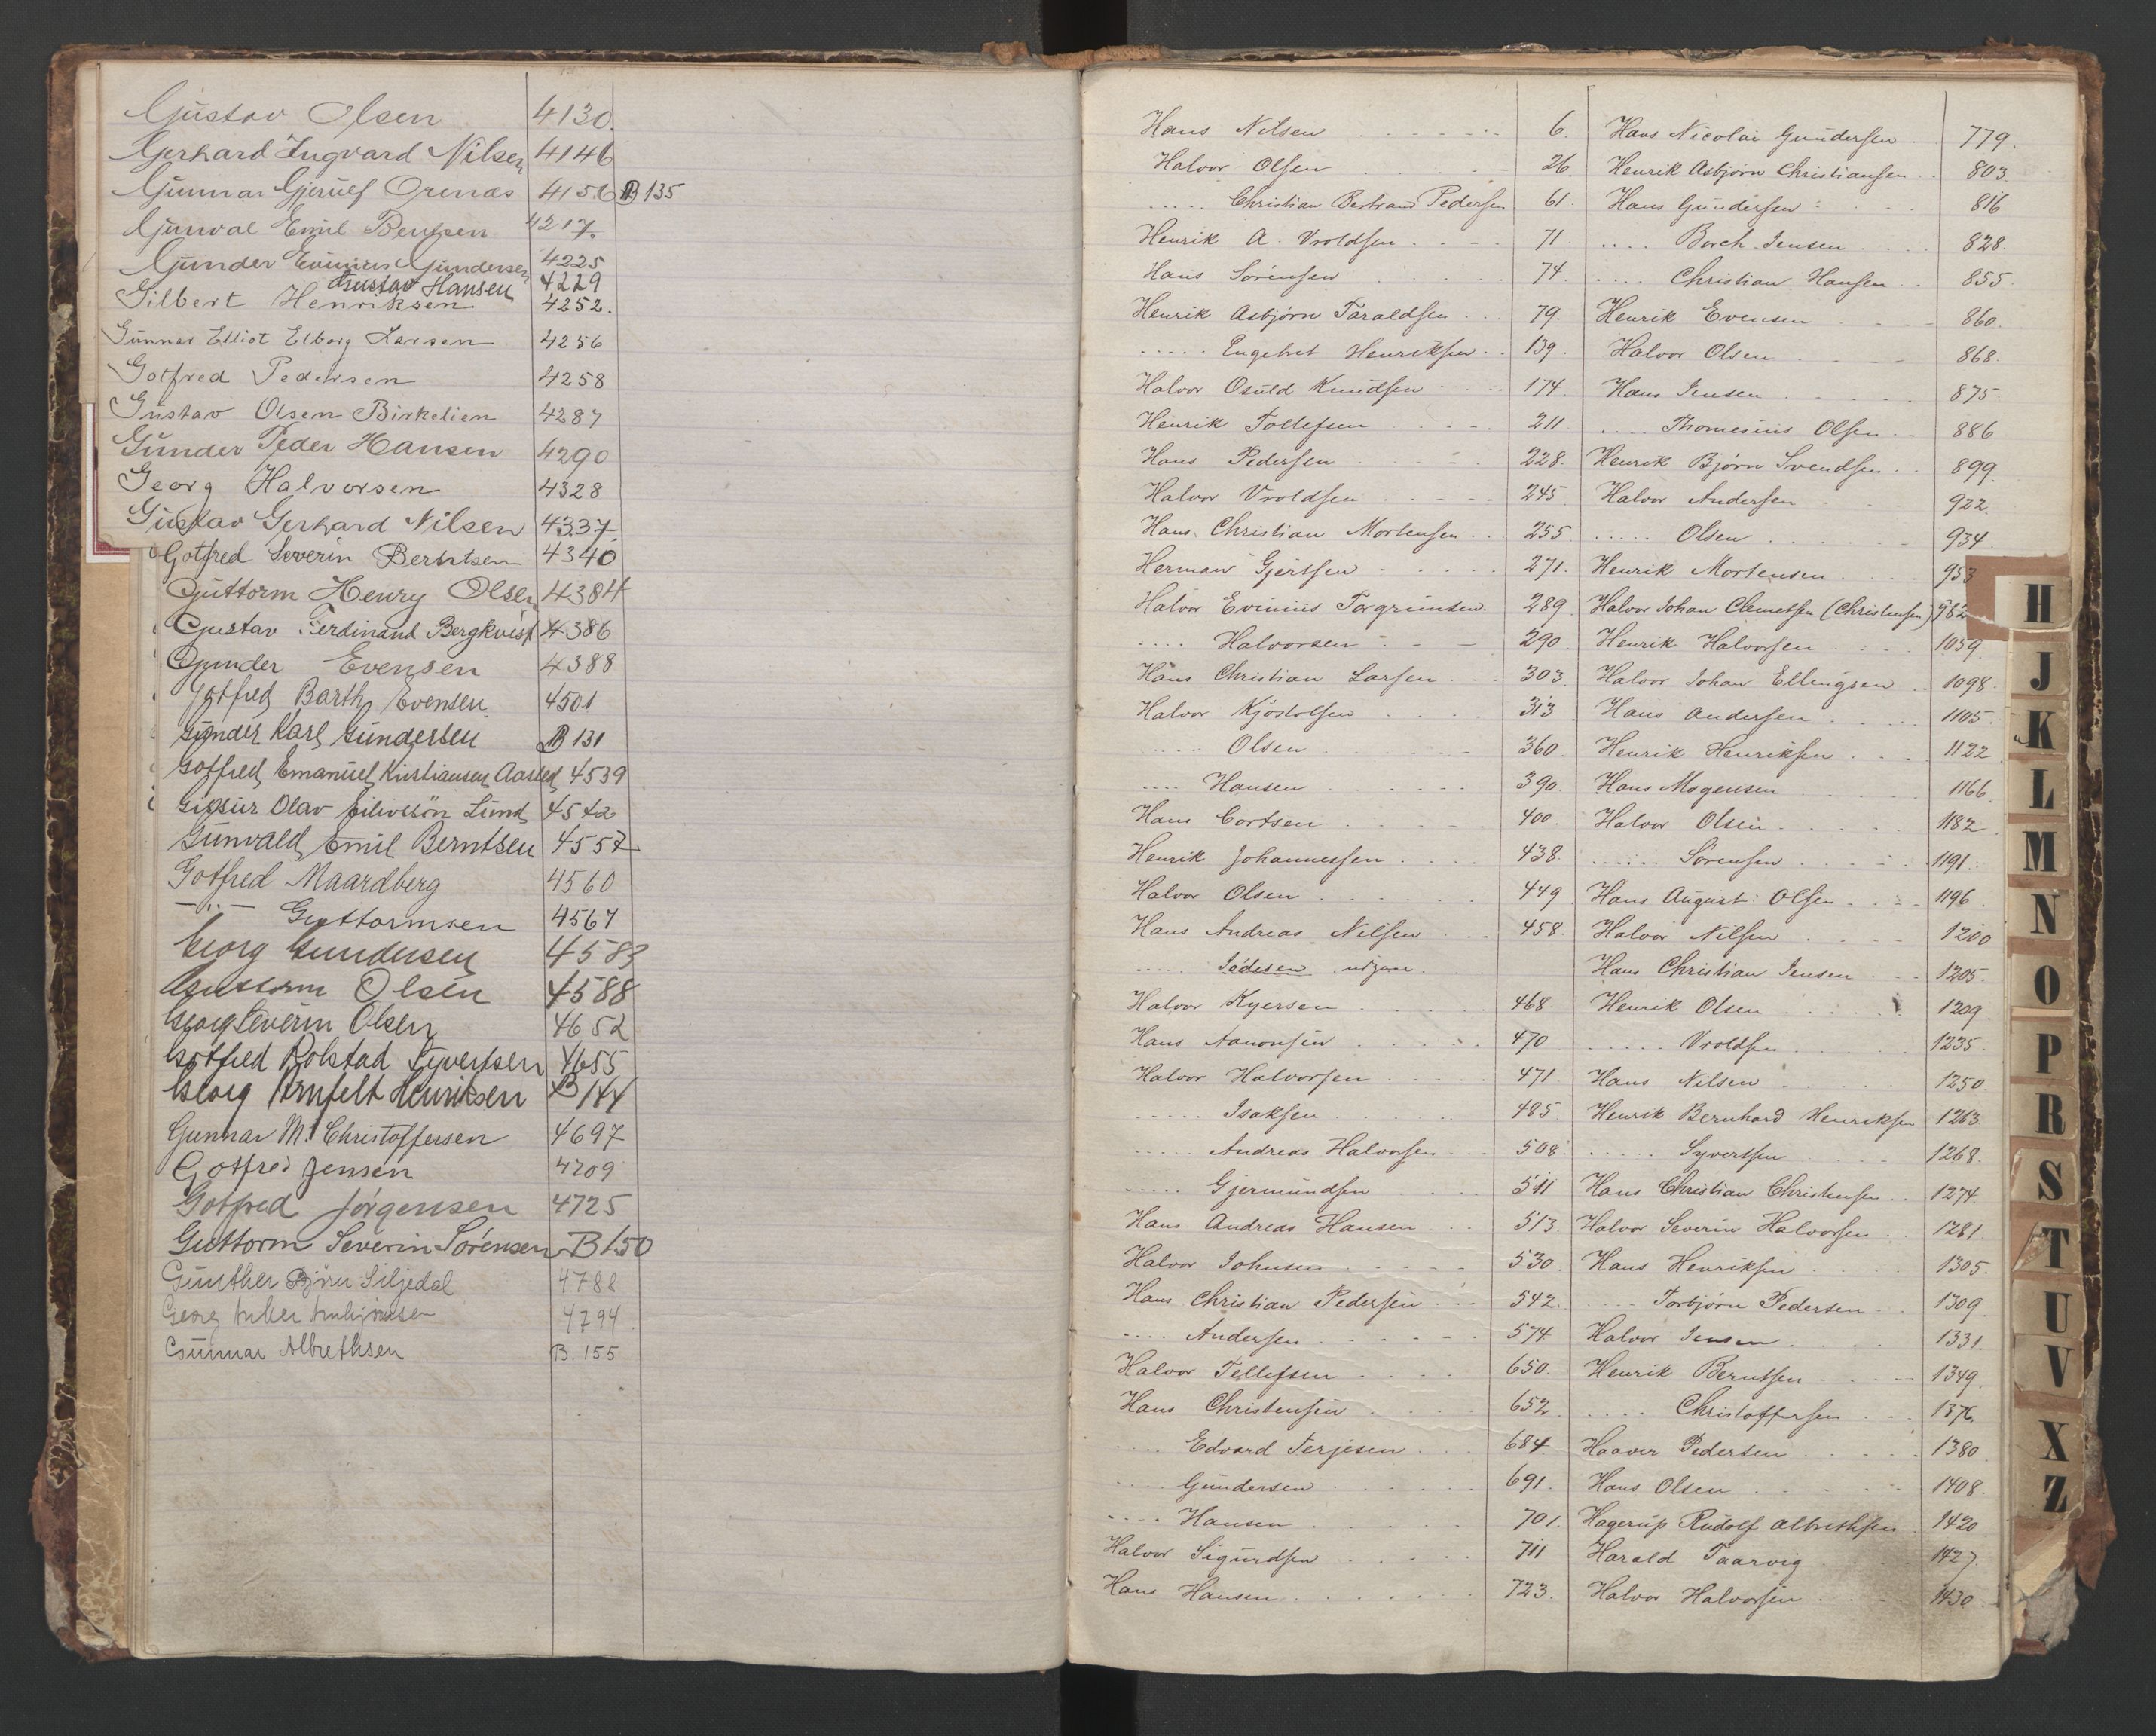 Gustav Olsen 4130.
Gerhard Ingvard Nilsen 4146
Gunnar Gjerulf Orenas 4156 B 135
Gunval Emil Bentsen 4217.
Gunder Evinius Gundersen 4225
Gustav Hansen 4229
Gilbert Henriksen 4252.
Gunnar Elliot Elborg Larsen 4256
Gotfred Pedersen 4258
Gustav Olsen Birkelien 4287
Gunder Peder Hansen 4290
Georg Halvorsen 4328
Gustav Gerhard Nilsen 4337.
Gotfred Severin Berntsen 4340
Guttorm Henry Olsen 4384
Gustav Ferdinand Bergkvist 4386
Gunder Evensen 4388
Gotfred Barth Evensen 4501
Gunder Karl Gundersen B 131
Gotfred Emanuel Kristiansen 4539
Olav Lund 4542
Gunvald Emil Berntsen 4557.
Gotfred Maardberg 4560
— " — Guttormsen 4567
Georg Gundersen 4583
Guttorm Olsen 4588
Georg Severin Olsen 4652
Gotfred Rolstad Syvertsen 4655
Georg Arnfelt Henriksen B 144
Gunnar M. Christoffersen 4697
Gotfred Jensen 4709
Gotfred Jørgensen 4725
Guttorm Severin Sørensen B 150
Günther Bjørn Siljedal 4788
Georg 4794
Gunnar Albrethsen B. 155
Hans Nilsen 6.
Halvor Olsen 26.
..... Christian Bertrand Pedersen 61.
Henrik A. Vroldsen 71
Hans Sørensen 74.
Henrik Asbjørn Taraldsen 79.
..... Engebret Henriksen 139.
Halvor Osuld Knudsen 174
Henrik Tollefsen 211
Hans Pedersen 228.
Halvor Vroldsen 245
Hans Christian Mortensen 255
Herman Gjertsen 271.
Halvor Evinius Torgrimsen. 289
.... Halvorsen 290
Hans Christian Larsen 303.
Halvor Kjøstolsen 313
..... Olsen 360.
.... Hansen 390.
Hans Cortsen 400.
Henrik Johannessen 438.
Halvor Olsen 449
Hans Andreas Nilsen 458.
.....
Halvor Kyersen 468
Hans Aanonsen 470
Halvor Halvorsen 471.
..... Isaksen 485
..... Andreas Halvorsen 508
..... Gjermundsen 511
Hans Andreas Hansen 513
Halvor Johnsen 530.
Hans Christian Pedersen 542.
.... Andersen 574
Halvor Tellefsen 650.
Hans Christensen 652
.... Edvard Terjesen 684
.... Gundersen 691.
.... Hansen 701.
Halvor Sigurdsen 711
Hans Hansen 723.
Hans Nicolai Gundersen 779.
Henrik Asbjørn Christiansen 803.
Hans Gundersen 816
.... Borch Jensen 828.
.... Christian Hansen 855.
Henrik Evensen 860.
Halvor Olsen 868.
Hans Jensen 875.
.... Thomesius Olsen 886
Henrik Bjørn Svendsen 899.
Halvor Andersen 922.
..... Olsen 934
Henrik Mortensen 953
Halvor Johan Clemetsen (Christensen) 982
Henrik Halvorsen 1039.
Halvor Johan Ellingsen 1098.
Hans Andersen 1105.
Henrik Henriksen 1122
Hans Mogensen 1166.
Halvor Olsen 1182
...... Sørensen 1191.
Hans August Olsen 1196
Halvor Nilsen 1200
Hans Christian Jensen 1205.
Henrik Olsen 1209.
..... Vroldsen 1235.
Hans Nilsen 1250.
Henrik Bernhard Henriksen 1263
..... Syvertsen 1268.
Hans Christian Christensen 1274.
Halvor Severin Halvorsen 1281.
Hans Henriksen 1305.
.... Torbjørn Pedersen 1309
Halvor Jensen 1331.
Henrik Berntsen 1349
.... Christoffersen 1376.
Haaver Pedersen 1380
Hans Olsen 1408
Hagerup Rudolf Albrethsen 1420
Harald Taarvig 1427.
Halvor Halvorsen 1430
H
J
K
L
M
N
O
P
R
S
T
U
V
X
Z